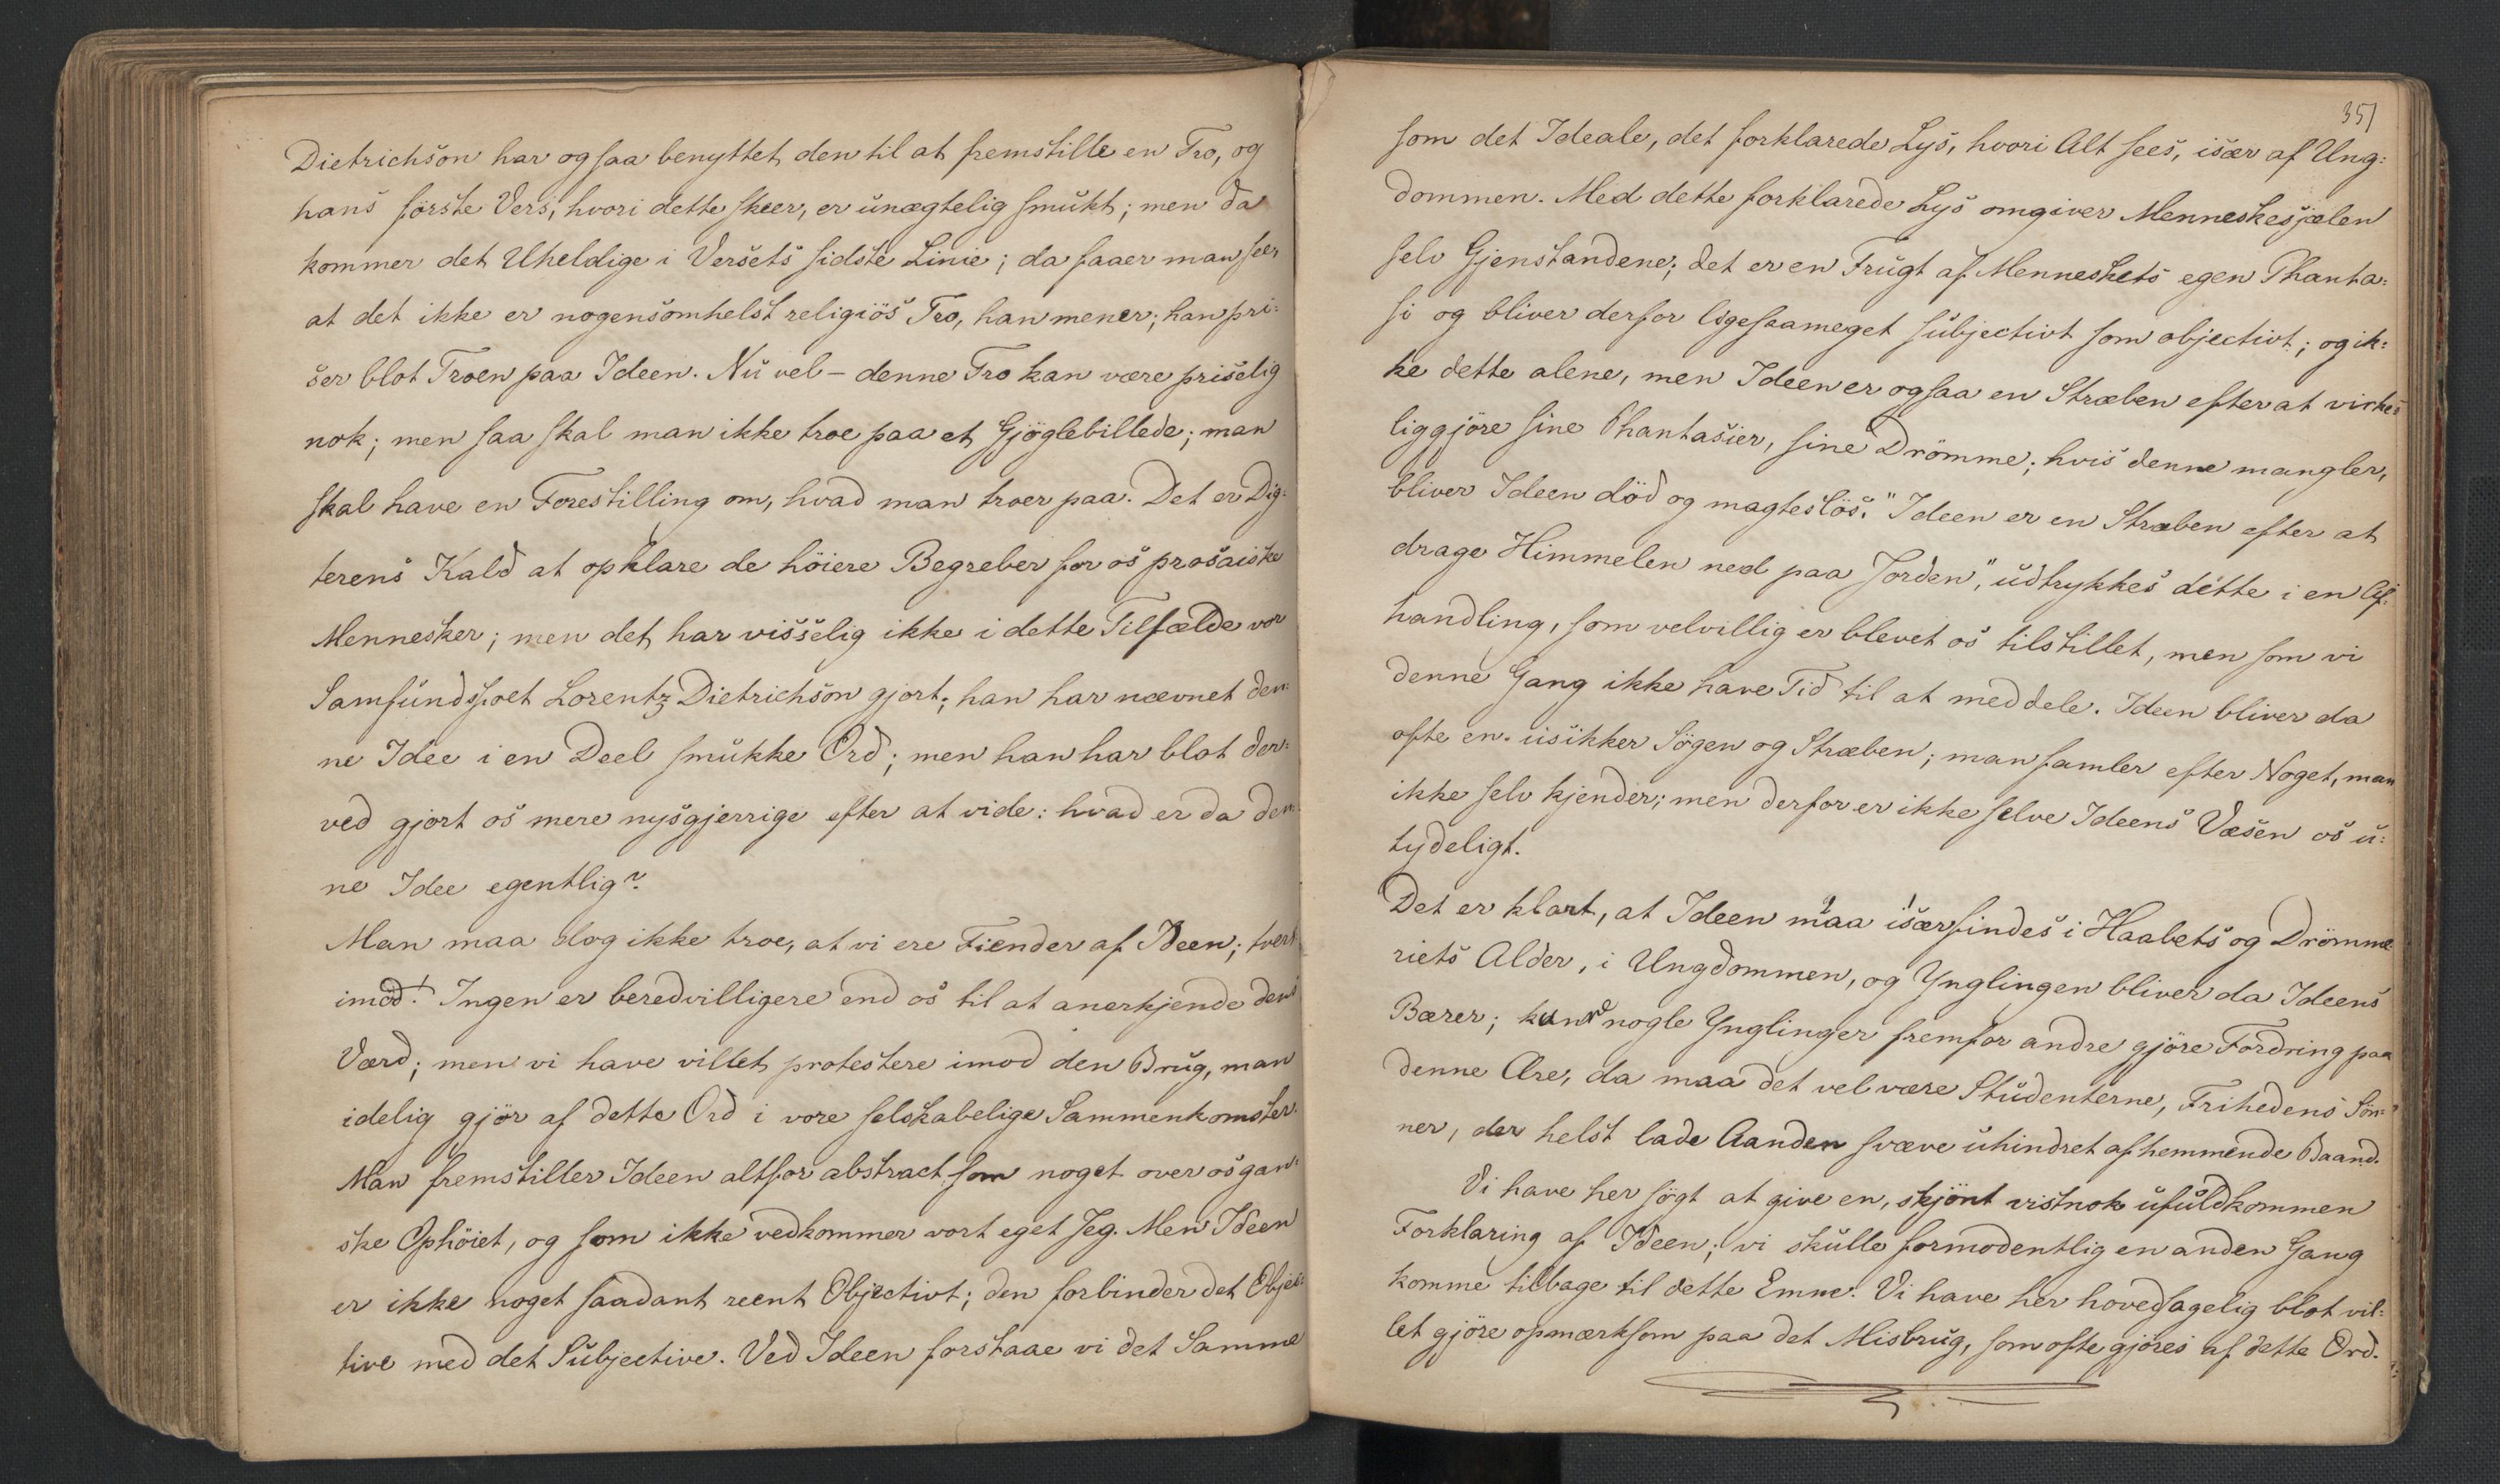 Dietrichson har ogsaa benyttet den til at fremstille en Tro, og
hans förste Vers, hvori dette skeer, er unægtelig smukt; men da
kommer det Uheldige i Versets sidste Linie; da faaer man see,
at det ikke er nogensomhelst religiös Tro, han mener; han pri:
ser blot Troen paa Ideen. Nu vel – denne Tro kan være priselig
nok; men saa skal man ikke troe paa et Gjöglebillede; man
skal have en Forestilling om, hvad man troer paa. Det er Dig:
terens Kald at opklare de höiere Begreber for os prosaiske
Mennesker; men det har visselig ikke i dette Tilfælde vor
Samfundspoet Lorentz Dietrichson gjort; han har nævnet den:
ne Idee i en Deel smukke Ord; men han har blot der:
ved gjort os mere nysgjerrige efter at vide: hvad er da den:
ne Idee egentlig?
Man maa dog ikke troe, at vi ere Fiender af Ideen; tvert
imod! Ingen er beredvilligere end os til at anerkjende dens
Værd; men vi have villet protestere imod den Brug, man
idelig gjör af dette Ord i vore selskabelige Sammenkomster.
Man fremstiller Ideen altfor abstract som noget over os gan:
ske Ophöiet, og som ikke vedkommer vort eget Jeg. Men Ideen
er ikke noget saadant reent Objectivt; den forbinder det Objec:
tive med det Subjective. Ved Ideen forstaae vi det Samme
351
som det Ideale, det forklarede Lys, hvori Alt sees, især af Ung:
dommen. Med dette forklarede Lys omgiver Menneskesjælen
selv Gjenstandene; det er en Frugt af Menneskets egen Phanta:
si og bliver derfor ligesaameget subjectivt som objectivt; og ik:
ke dette alene, men Ideen er ogsaa en Stræben efter at virke:
liggjöre sine Phantasier, sine Drömme; hvis denne mangler,
bliver Ideen död og magteslös. "Ideen er en Stræben efter at
drage Himmelen ned paa Jorden", udtrykkes dette i en Af:
handling, som velvillig er blevet os tilstillet, men som vi
denne Gang ikke have Tid til at meddele. Ideen bliver da
ofte en usikker Sögen og Stræben; man famler efter Noget, man
ikke selv kjender; men derfor er ikke selve Ideens Væsen os u:
tydeligt.
Det er klart, at Ideen maa især findes i Haabets og Drömme
riets Alder, i Ungdommen, og Ynglingen bliver da Ideens
Bærer; kan nogle Ynglinger fremfor andre gjöre Fordring paa
denne Ære, da maa det vel være Studenterne, Frihedens Sön:
ner, der helst lade Aanden svæve uhindret af hemmende Baand.
Vi have her sögt at give en, skjönt vistnok ufuldkommen
Forklaring af Ideen; vi skulle formodentlig en anden Gang
komme tilbage til dette Emne. Vi have her hovedsagelig blot vil:
let gjöre opmærksom paa det Misbrug, som ofte gjöres af dette Ord.